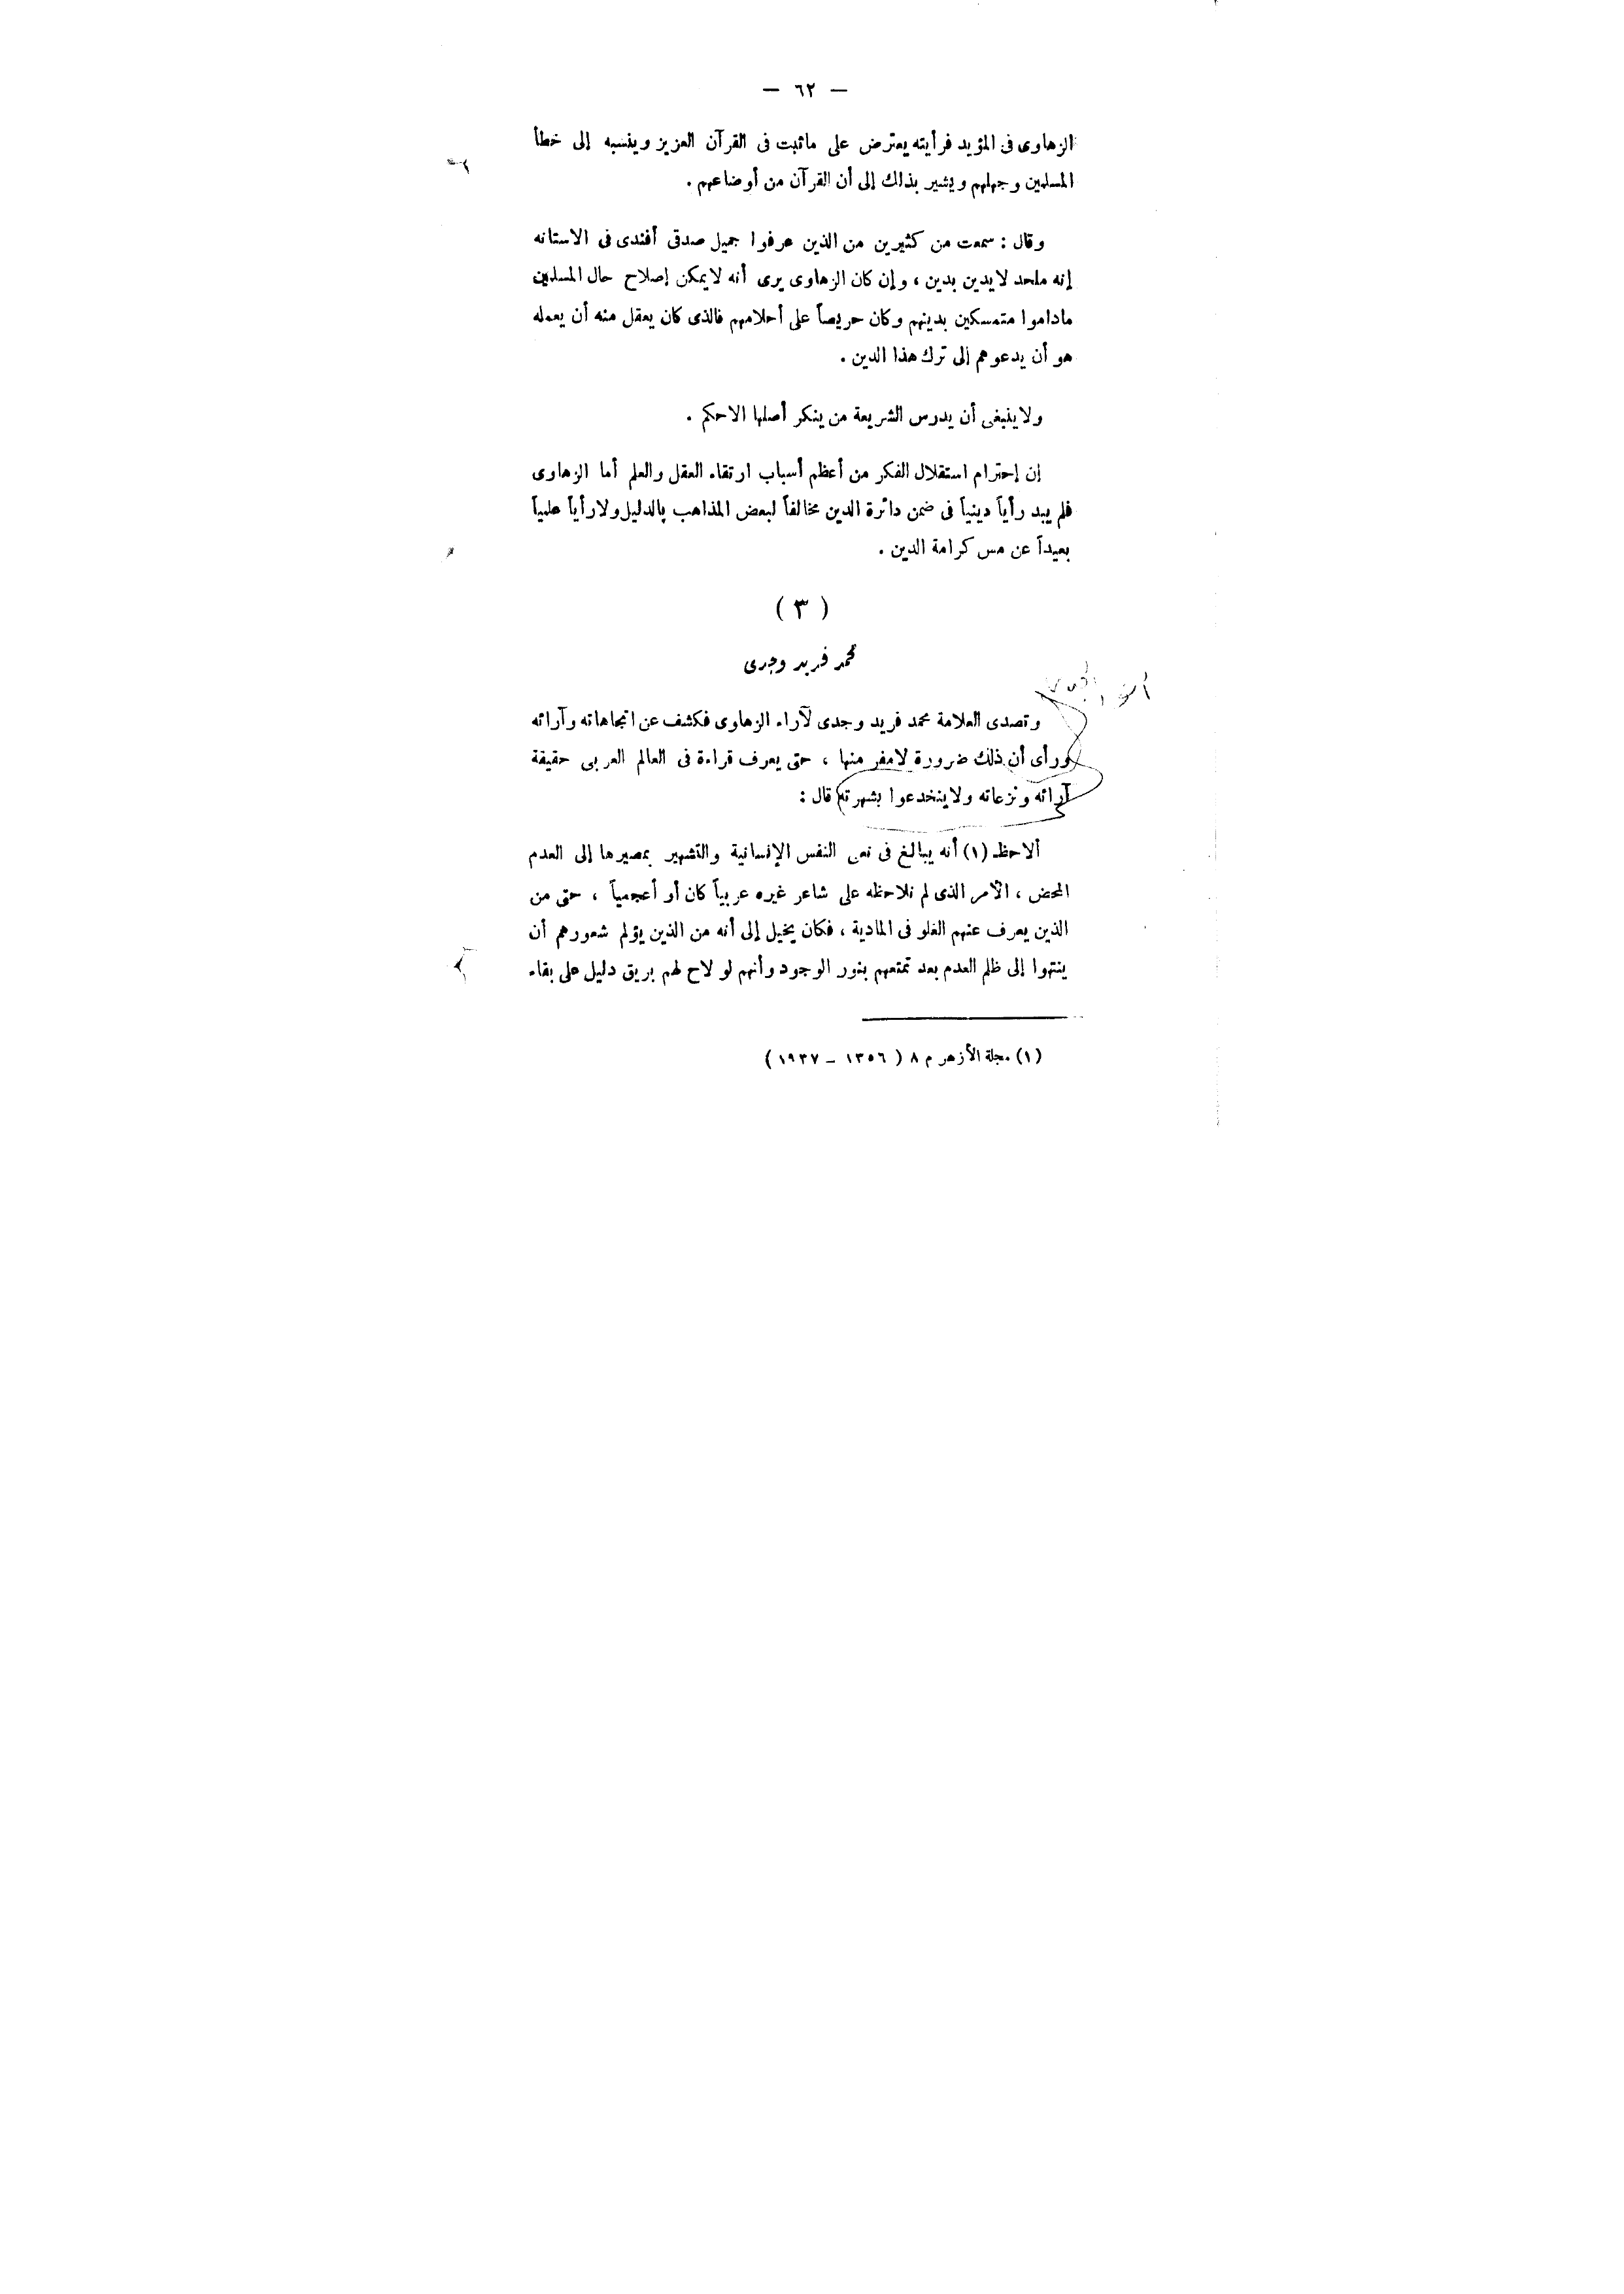 — ٦٢ —
الزهاوى فى المؤيد فرأيته يعترض على ماثبت فى القرآن العزيز وينسبه إلى خطأ
المسلمين وجهلهم ويشير بذلك إلى أن القرآن من أوضاعهم .
وقال : سمعت من كثيرين من الذين عرفوا جميل صدقى أفندى فى الاستانه
إنه ملحد لايدين بدين ، وإن كان الزهاوى يرى أنه لايمكن إصلاح حال المسلمين
ماداموا متمسكين بدينهم وكان حريصاً على أحلامهم فالذى كان يعقل منه أن يعمله
هو أن يدعوهم إلى ترك هذا الدين .
ولاينبغى أن يدرس الشريعة من ينكر أصلها الاحكم .
إن إحترام استقلال الفكر من أعظم أسباب ارتقاء العقل والعلم أما الزهاوى
فلم يبد رأياً دينياً فى ضمن دائرة الدين مخالفاً لبعض المذاهب بالدليل ولارأياً علمياً
بعيداً عن مس كرامة الدين .
( ٣ )
محمد فريد وجدى
وتصدى العلامة محمد فريد وجدى لآراء الزهاوى فكشف عن اتجاهاته وآرائه
ورأى أن ذلك ضرورة لامفر منها ، حتى يعرف قراءة فى العالم العربى حقيقة
آرائه ونزعاته ولاينخدعوا بشهرته قال :
ألاحظ (١) أنه يبالغ فى نعى النفس الإنسانية والتشهير بمصيرها إلى العدم
المحض ، الأمر الذى لم نلاحظه على شاعر غيره عربياً كان أو أعجمياً ، حتى من
الذين يعرف عنهم الغلو فى المادية ، فكان يخيل إلى أنه من الذين يؤلم شعورهم أن
ينتهوا إلى ظلم العدم بعد تمتعهم بنور الوجود وأنهم لو لاح لهم بريق دليل على بقاء
(١) مجلة الأزهر م ٨ ( ١٣٥٦ – ١٩٣٧ )